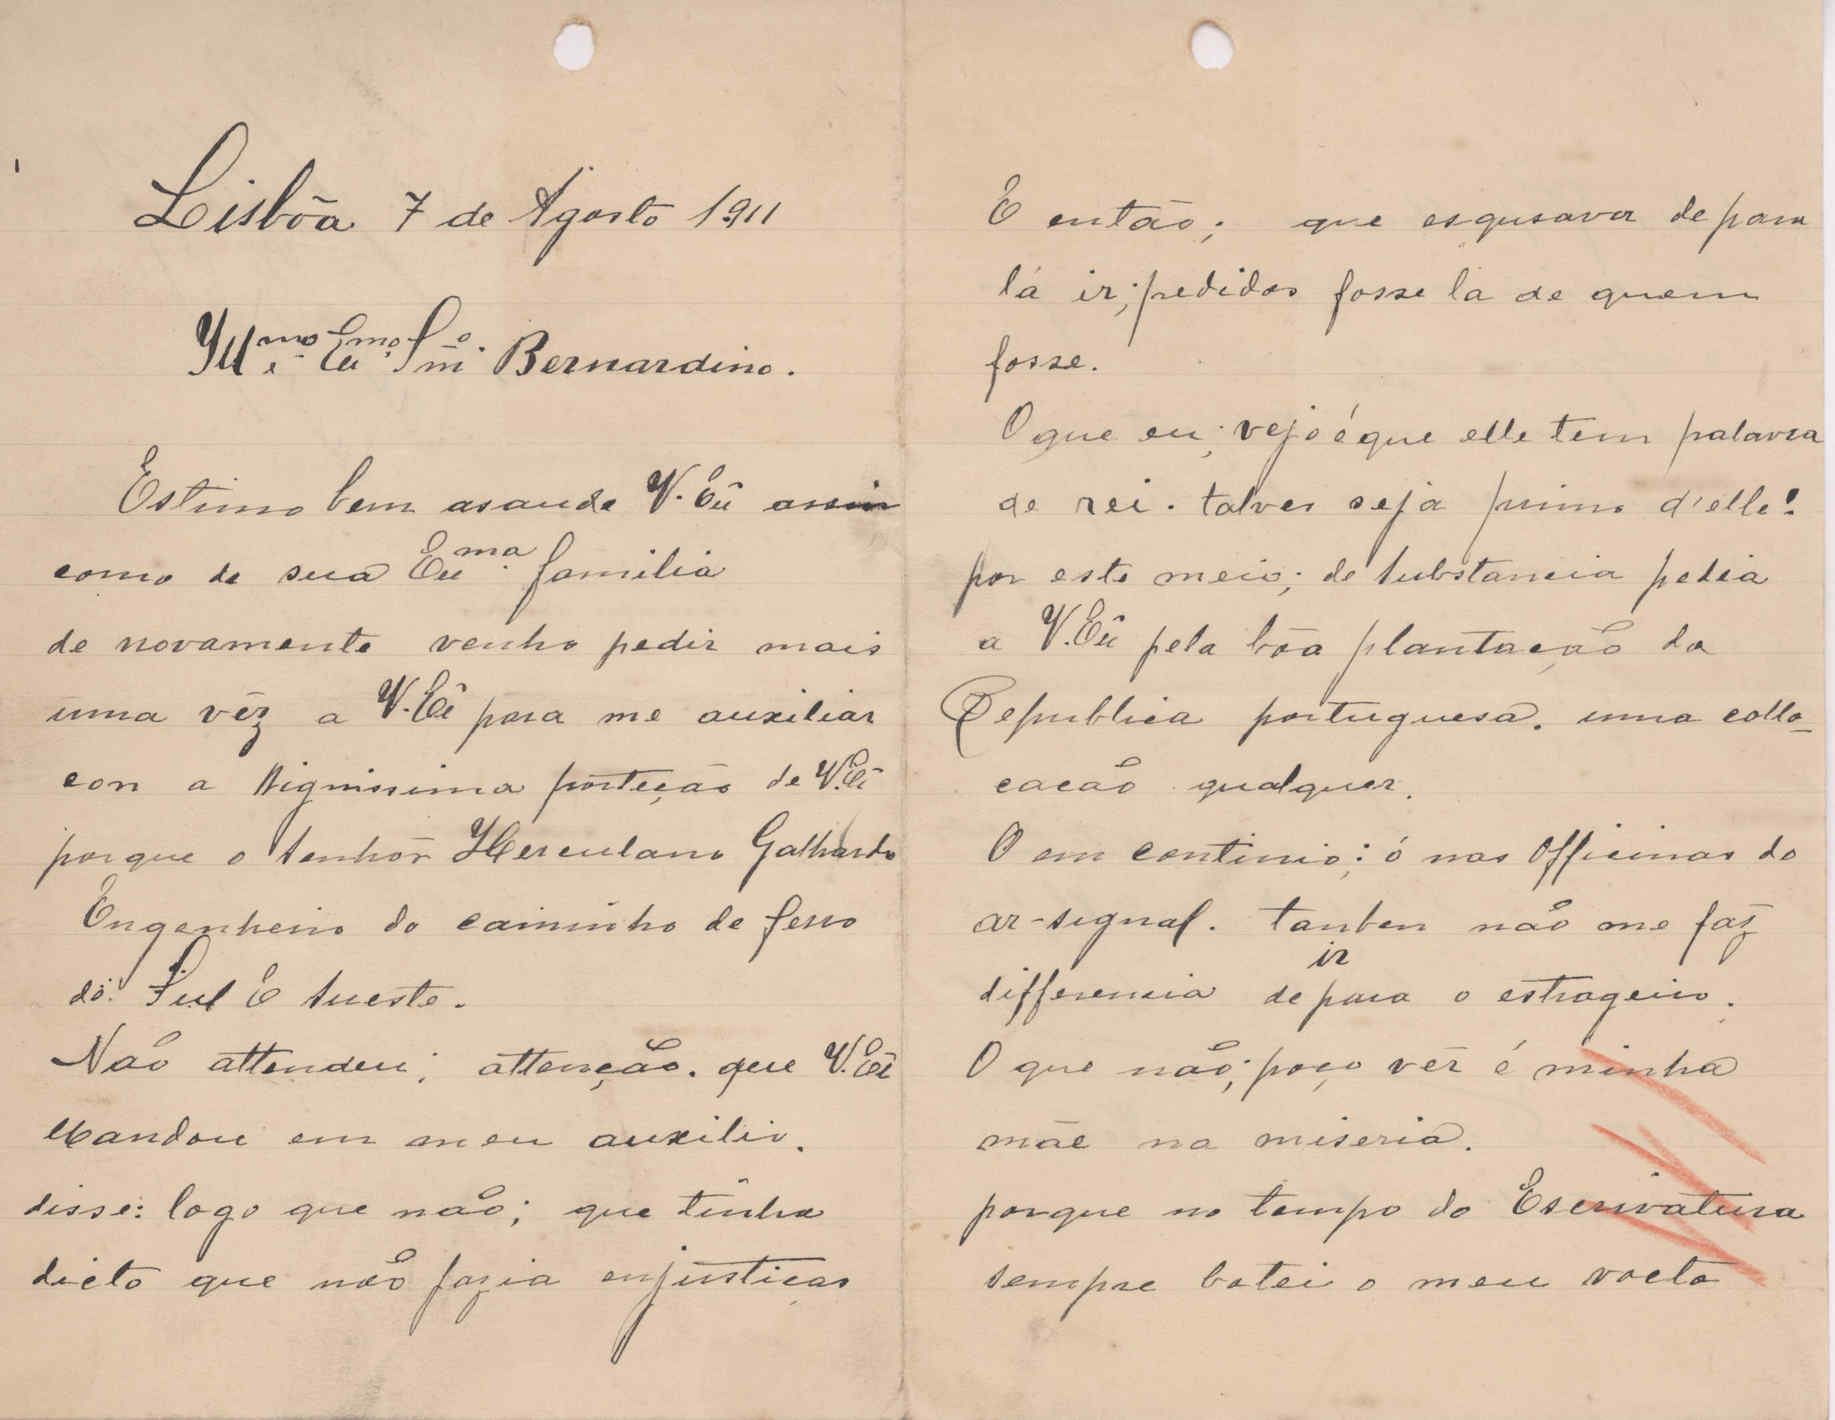 Lisbõa 7 de Agosto 1911
Ill.mo Ex.mo Snr. Bernardino.
Estimo bem asaude V. Exª assin
como de sua Ex.ma familia
de novamente venho pedir mais
uma vêz a V. Exª para me auxiliar
con a Dignissima porteção de V. Exª
porque o senhôr Herculano Galhardo
Engenheiro do caiminho de ferro
dó Sul E sueste.
Não attendeu; attenção. que V. Exª
Mandou em meu auxilio.
disse: logo que não; que tinha
dicto que não fazia enjustiças
E então; que esqusava de para
lá ir; pedidos fosse la de quem
fosse.
O que eu; vejo é que elle tem palavra
de rei. talves seja primo d'elle!
por este meio; de substancia pedia
a V. Exª pela bõa plantação da
Republica portuguesa. uma collo-
cacão qualquer.
O em continio; ó nas Officinas do
ar-signal. tanben não me faz
differencia de ir para o estrageiro.
O que não; poço vêr é minha
mãe na miseria.
porque no tempo do Escrivatura
sempre botei o meu vocto